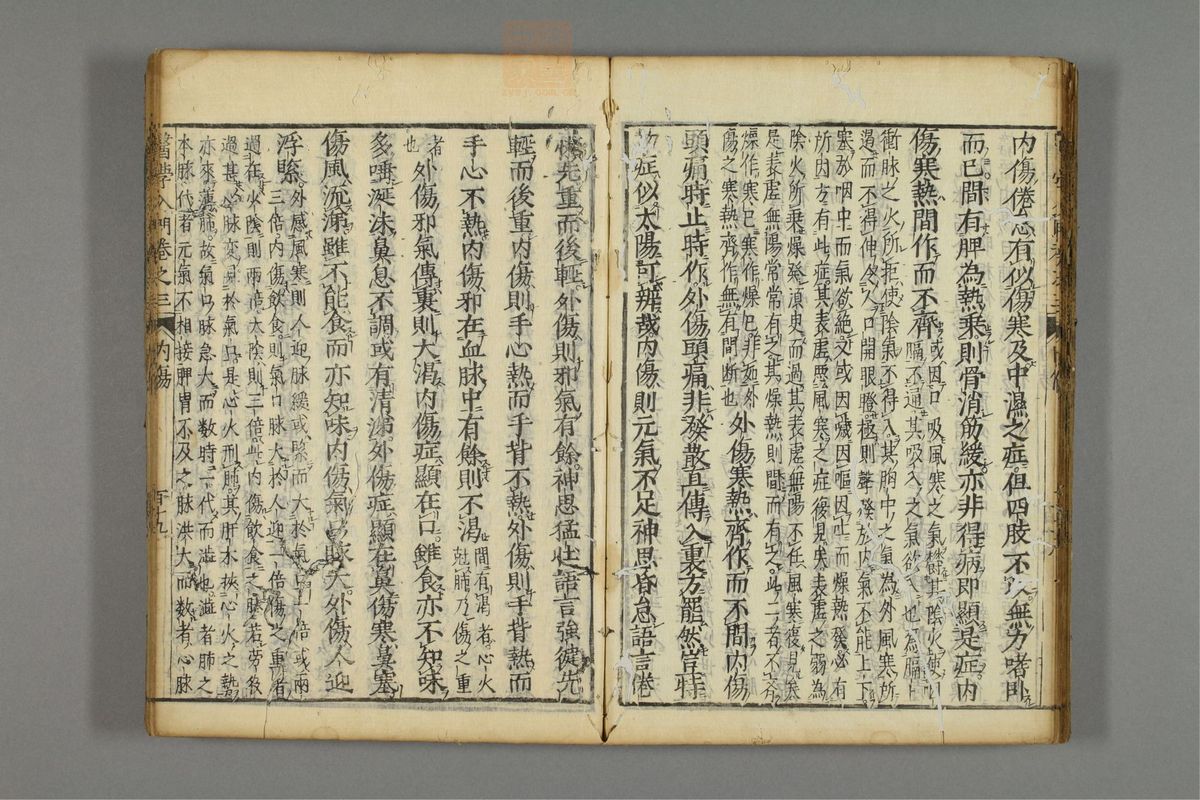 内傷倦怠有似傷寒及中濕之症但四肢不收無力嗜卧
而已間有脾為熱乗則骨消筋緩亦非得病即顯是症内
傷寒熱間作而不齊
或因口吸風寒之氣
膈不通其吸入之氣欲
衝脉之火所拒使陰氣不得入其胸中之氣為外風寒所
過而不得伸令人口開眼瞪極則聲發於外氣不能上下
塞於咽中而氣欲絶又或因噦因嘔因吐而燥熱發必有
所因方有此症其表虚惡風寒之症復見表虚之弱為
陰火所乗燥發須臾而過其表虚無陽不任風寒復見矣
是表虚無陽常常有之其燥熱則間而有之此二者不齊
燥作寒已寒作燥已非如外
傷之寒熱齊作無有間断也
外傷寒熱齊作而不間内傷
頭痛時止時作外傷頭痛非發散直傳入裏方罷然豈特
此症似太陽可辨哉内傷則元氣不足神思昏怠語言倦
懶先重而後輕外傷則邪氣有餘神思猛壮語言強健先
輕而後重内傷則手心熱而手背不熱外傷則手背熱而
手心不熱内傷邪在血脉中有餘則不渴
間有渴者心火
尅肺乃傷之重
者
也
外傷邪氣傳裏則大渴内傷症顯在口雖食亦不知味
多唾涎沫鼻息不調或有清涕外傷症顯在鼻傷寒鼻塞
傷風流涕雖不能食而亦知味内傷氣口脉大外傷人迎
浮緊
外感風寒則人迎脉緩或緊而大於氣口一倍或兩
三倍内傷飲食則氣口脉大於人迎一倍傷之重者
過在少陰則兩倍太陰則三倍此内傷飲食之脉若勞役
過甚心脉変見於氣口是心火刑肺其肝木挾心火之勢
亦來薄肺故氣口脉急大而数時一代而澁也澁者肺之
本脉代者元氣不相接脾胃不及之脉洪大而数者心脉
醫學入門卷之三
内傷
百十九